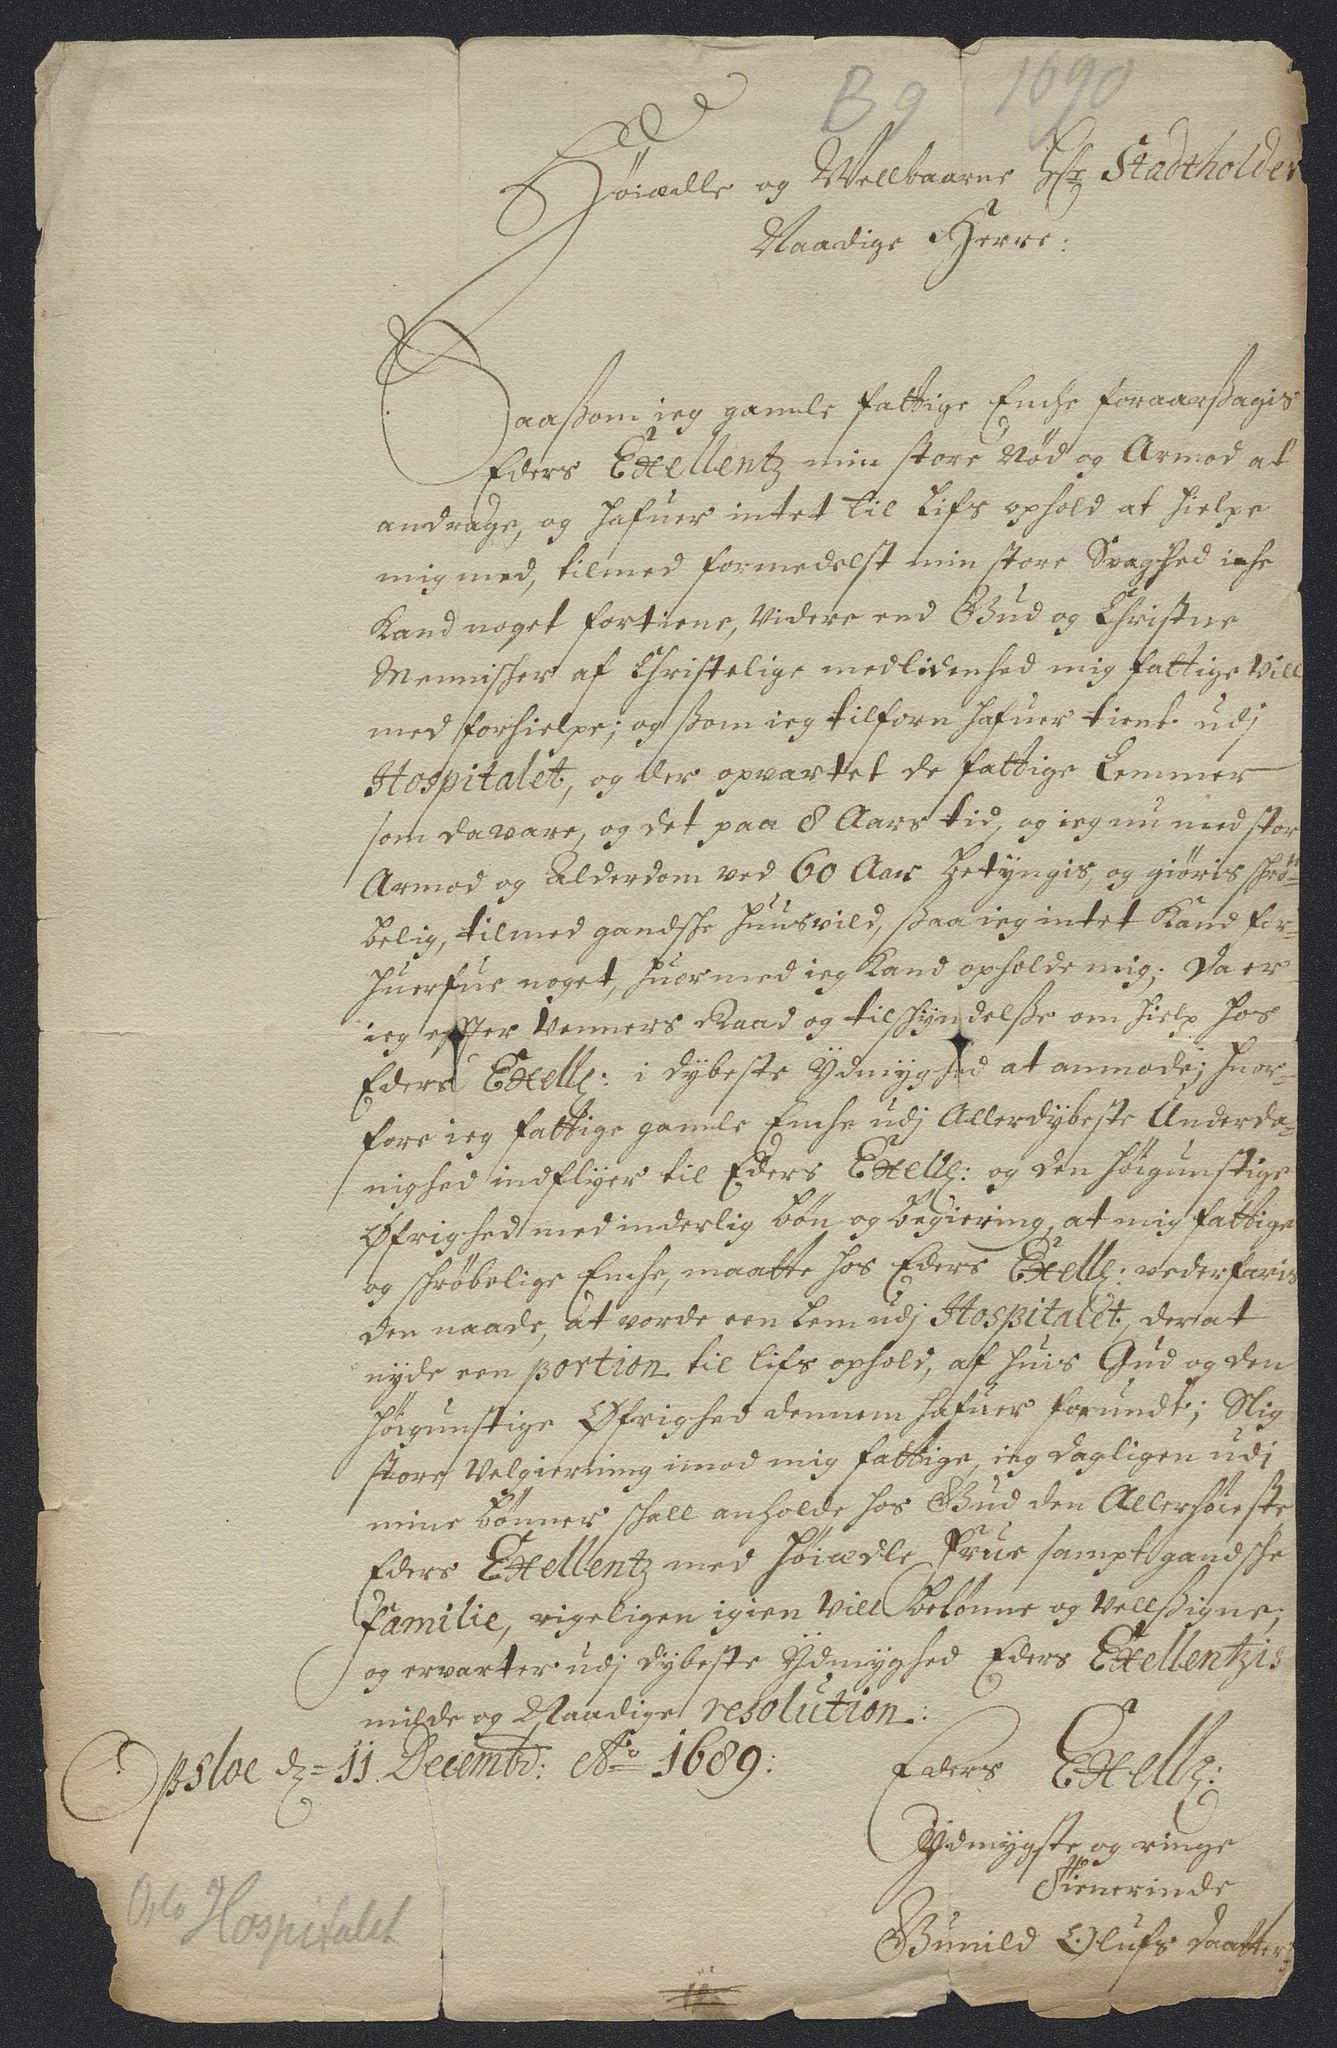 B 9 1690
Høiædle og Wellbaarne Hr Stadtholder
Naadige Herre:
Saassom ieg gamle fattige Enche foraarssagis
Eders Exellentz min store Nød og Armod at
andrage, og hafuer intet til Lifs ophold at hielpe
mig med, tilmed formedelst min store Svaghed iche
Kand noget fortiene, Videre end Gud og Christne
Mennisher af Christelige medlidenhed mig fattige Vill
med forhielpe; og ssom ieg tilforn hafuer tient udj
Hospitalet, og der opvartet de fattige Lemmer
som da vare, og det paa 8 Aars tid, og ieg nu med stor
Armod og Alderdom ved 60 Aar betyngis, og giøris schrø-
belig, tilmed gandsche huusvild, ssaa ieg intet Kand for-
huerfue noget, huormed ieg Kand opholde mig; Da er
ieg effter Venners Raad og tilschÿndelsse om hielp hos
Eders Exellz: i dybeste Ydmyghed at anmode; huor-
fore ieg fattige gamle Enche udj Allerdÿbeste Underda-
nighed indflÿer til Eders Exellz: og den høigunstige
Øfrighed med inderlig bøn og begiering, at mig fattige
og schrøbelige Enche, maatte hos Eders Exellz: vederfaris
den naade, at vorde een Lem udj Hospitalet, der at
nÿde een portion til lifs ophold, af huis Gud og den
høigunstige Øfrighed dennem hafuer forundt; Slig
store Velgierning imod mig fattige, ieg dagligen udj
mine bønner schall anholde hos Gud den Allerhøieste
Eders Exellentz med høiædle Frue sampt gandsche
Familie, rigeligen igien Vill belønne og Vellssigne;
og ervarter udj dybeste Ydmyghed Eders Exellentzis
milde og Naadige resolution:
Opsloe dz= 11 Decembr: Ao 1689:
Eders Exellz:
Ydmygste og ringe
Tienerinde
Gunild Olufs daatter
Oslo Hospitalet